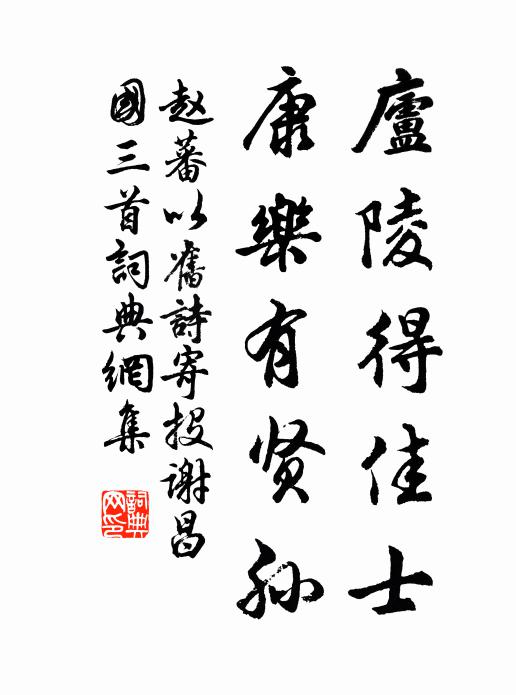 廬陵得佳士
康樂有贤孙
赵蕃以舊詩寄投谢昌
國三首詞典網集
詞典网印